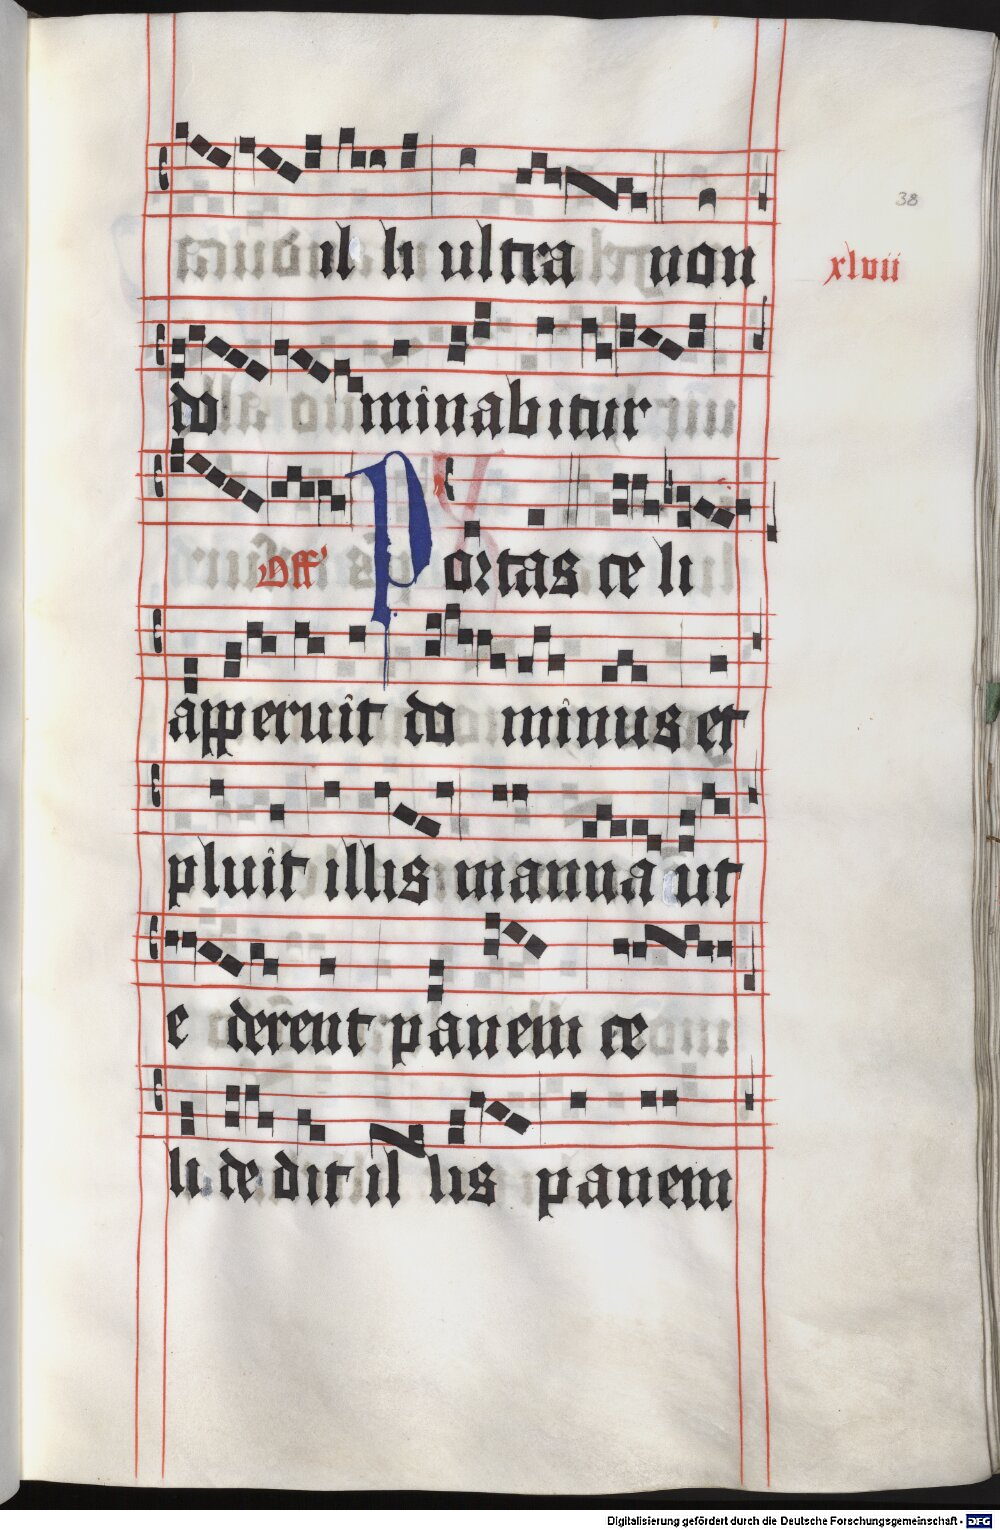 38
il li ultra non
xlvii
do minabitur
Off' Portas ce li
apperuit do minus et
pluit illis manna ut
e derent panem ce
li de dit il lis panem
Digitalisierung gefördert durch die Deutsche Forschungsgemeinschaft - DFG